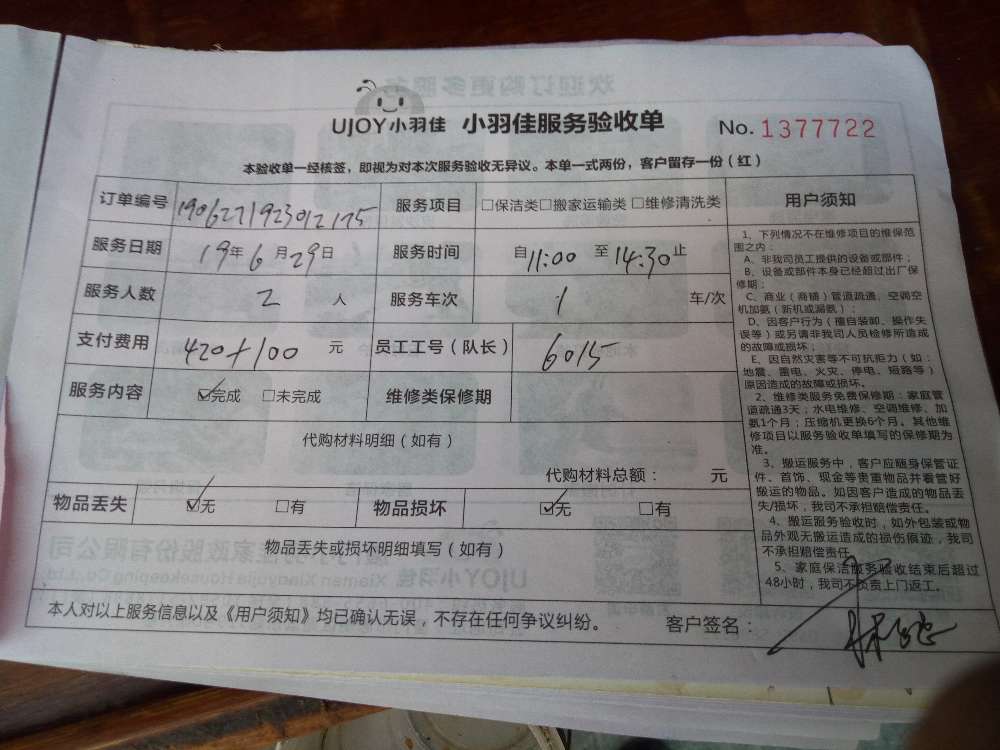 UJOY小羽佳 小羽佳服务验收单 No. 1377722
本验收单一经核签，即视为对本次服务验收无异议。本单一式两份，客户留存一份（红）
订单编号 1906271923012175 服务项目 □保洁类□搬家运输类 □维修清洗类
服务日期 19年 6月 29日 服务时间 自11:00 至 14:30止
服务人数 2 人 服务车次 1 车/次
支付费用 420+100 元 员工工号（队长） 6015
服务内容 ☑完成 □未完成 维修类保修期
代购材料明细（如有）
代购材料总额： 元
物品丢失 ☑无 □有 物品损坏 ☑无 □有
物品丢失或损坏明细填写（如有）
用户须知
1、下列情况不在维修项目的维保范
围之内：
A、非我司员工提供的设备或部件；
B、设备或部件本身已经超过出厂保
修期；
C、商业（商铺）管道疏通、空调空
机加氨（新机或漏氨）；
D、因客户行为（擅自装卸、操作失
误等）或另请非我司人员检修所造成
的故障或损坏；
E、因自然灾害等不可抗拒力（如：
地震、雷电、火灾、停电、短路等）
原因造成的故障或损坏。
2、维修类服务免费保修期：家庭管
道疏通3天；水电维修、空调维修、加
氨1个月；压缩机更换6个月。其他维
修项目以服务验收单填写的保修期为
准。
3、搬运服务中，客户应随身保管证
件、首饰、现金等贵重物品并看管好
搬运的物品。如因客户造成的物品丢
失/损坏，我司不承担赔偿责任。
4、搬运服务验收时，如外包装或物
品外观无搬运造成的损伤痕迹，我司
不承担赔偿责任。
5、家庭保洁服务验收结束后超过
48小时，我司不负责上门返工。
本人对以上服务信息以及《用户须知》均已确认无误，不存在任何争议纠纷。 客户签名：